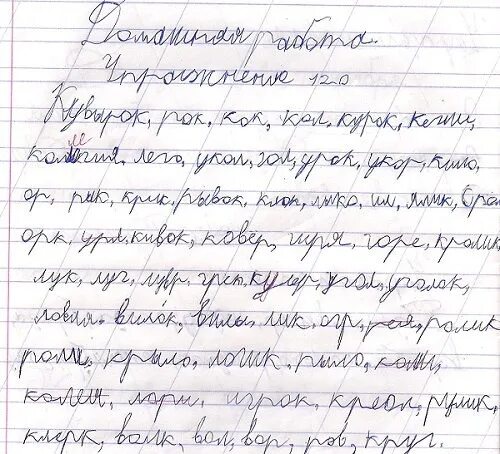 Домашняя работа.
Упражнение 120
Кувырок, рок, кок, кол, курок, кегли,
коллегия, лего, укол, гол, урок, укор, кило,
ор, рык, крик, рывок, клок, лыко, ил, ялик,
орк, урл, кивок, ковер, гиря, горе, кролик
лук, луг, игр, грек, кулер, угол, уголок,
ловля. вилок, вилы, лик, огр, рея, ролик
роли, крыло, логик, рыло, коли,
колет, лори, игрок, креол, рулик,
клерк, волк, вол, вор, ров, круг.